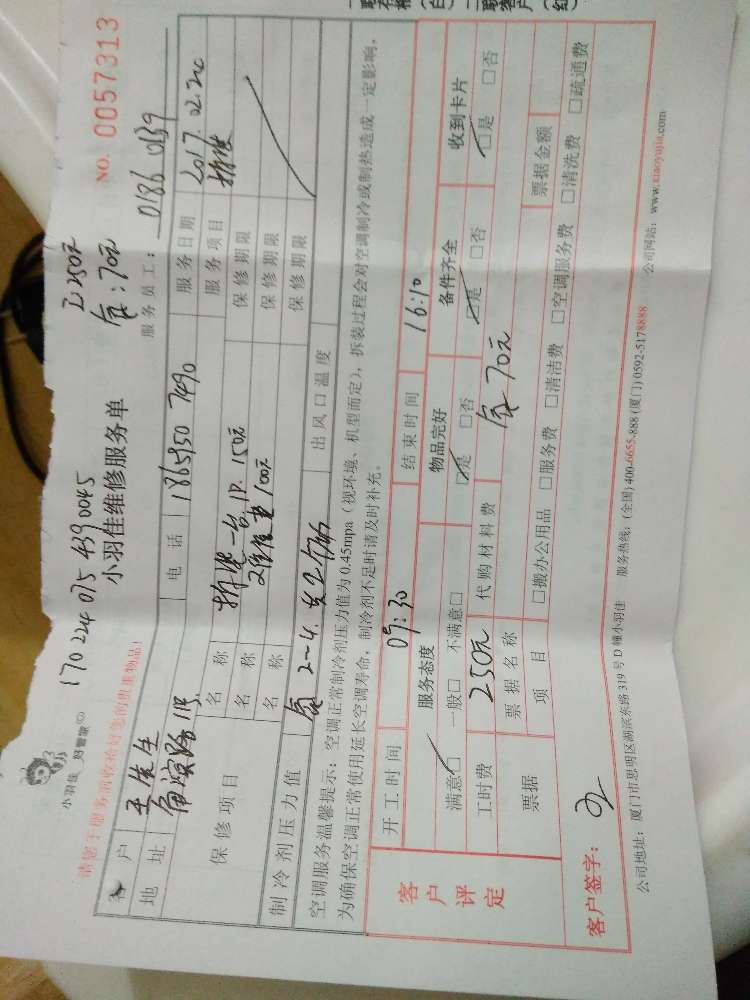 小羽佳 好管家
170224 075 4390045
工:250元
NO. 0057313
请您于服务前收拾好您的贵重物品!
小羽佳维修服务单
:70元
服务员工: 0186 0139
客户 王先生 电话 1865950 7490 服务日期 2017.02.24
地址 1号 服务项目
保修项目 名称 一台1P.150元 保修期限
名称 100元 保修期限
名称 保修期限
制冷剂压力值 出风口温度
空调服务温馨提示:空调正常制冷剂压力值为0.45mpa(视环境、机型而定),拆装过程会对空调制冷或制热造成一定影响,
为确保空调正常使用延长空调寿命,制冷剂不足时请及时补充。
客户评定
开工时间 09:30 结束时间 16:10
服务态度 物品完好 备件齐全 收到卡片
满意□ 一般□ 不满意□ □是 □否 □是 □否 □是 □否
工时费 250元 代购材料费 70元
票据 票据名称 票据金额
项目 □搬办公用品 □服务费 □清洁费 □空调服务费 □清洗费 □疏通费
客户签字:
公司地址:厦门市思明区湖滨东路319号D幢小羽佳 服务热线:(全国)400-6655-888(厦门)0592-5178888 公司网站:www.xiaoyujia.com